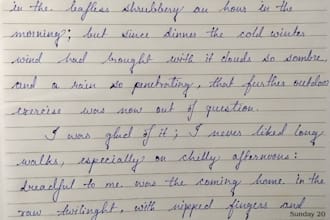 in the leafless shrubbery an hour in the
morning; but since dinner the cold winter
wind had brought with it clouds so sombre,
and a rain so penetrating, that further outdoor
exercise was now out of question.
I was glad of it; I never liked long
walks, especially on chilly afternoons:
dreadful to me was the coming home in the
raw twilinght, with nipped fingers and
Sunday 20